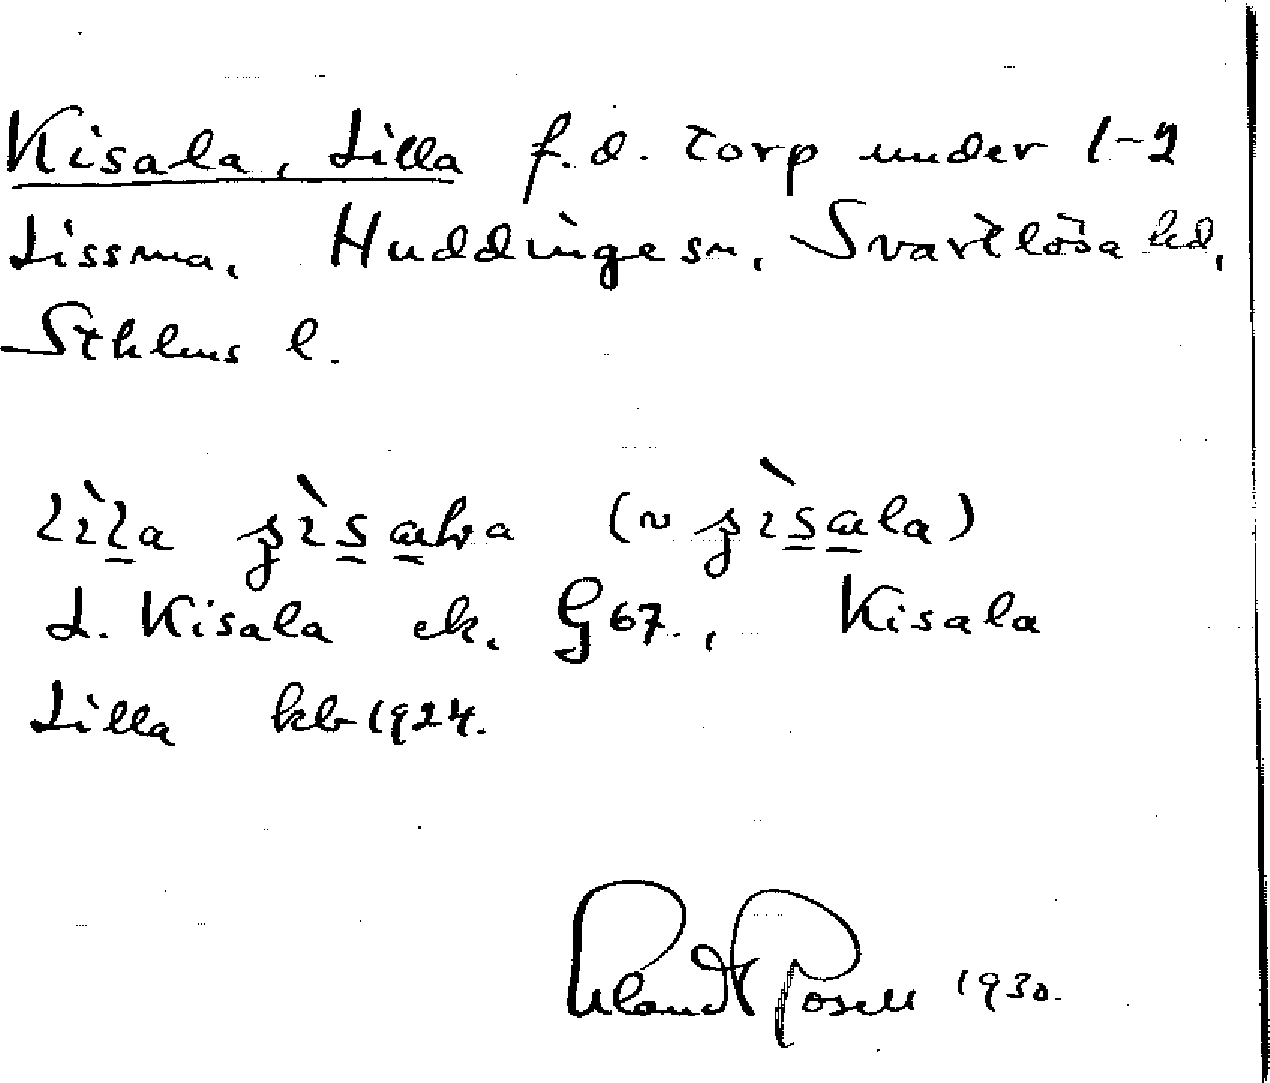 Kisala, Lilla f.d. torp under 1-2
Lissma, Huddinge sn, Svartlösa hd,
Sthlms l.
L. Kisala ek. G67., Kisala
Lilla kb 1924.
1930.